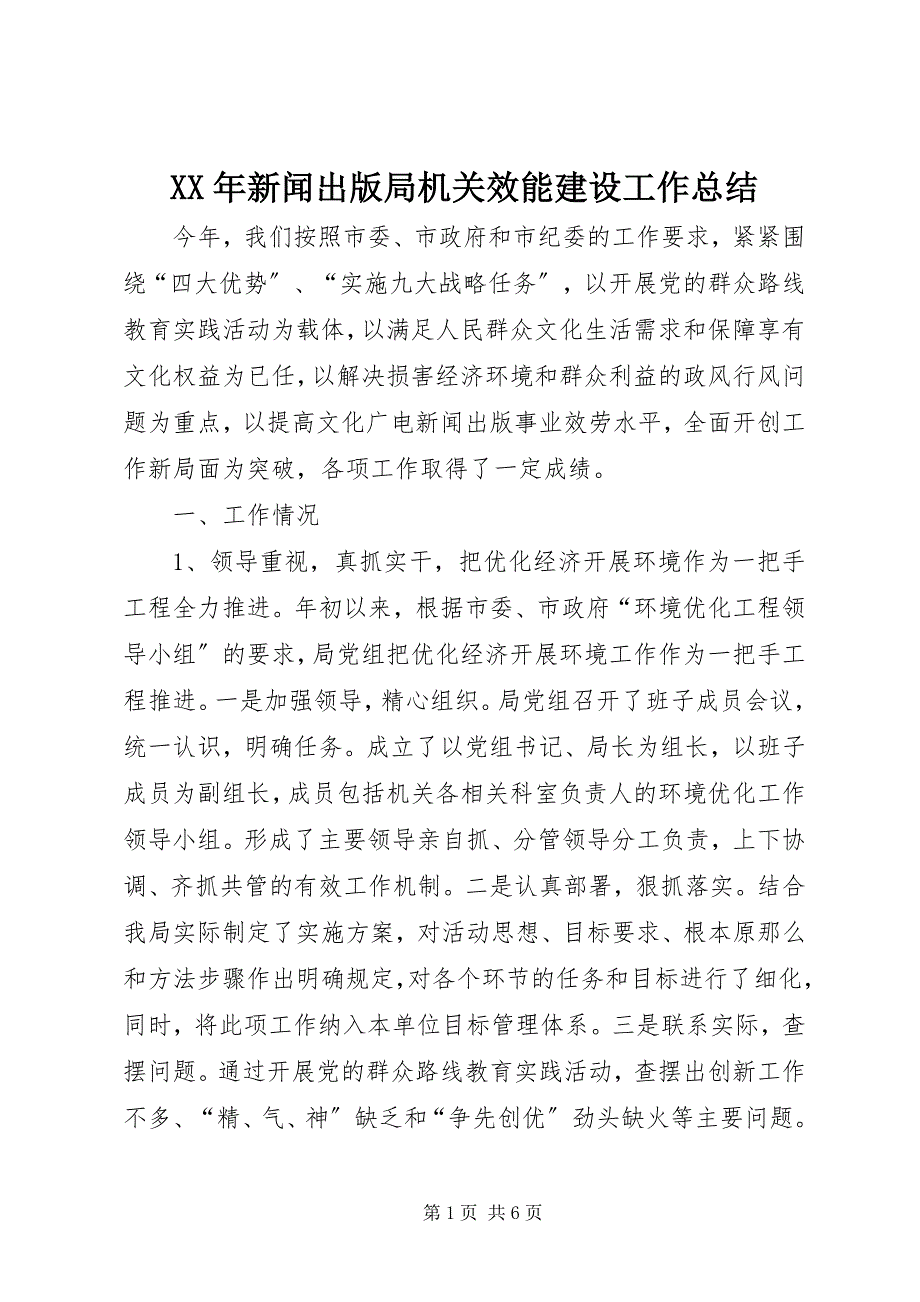 XX 年新闻出版局机关效能建设工作总结
今年，我们按照市委、市政府和市纪委的工作要求，紧紧围
绕“四大优势〞、“实施九大战略任务〞，以开展党的群众路线
教育实践活动为载体，以满足人民群众文化生活需求和保障享有
文化权益为已任，以解决损害经济环境和群众利益的政风行风问
题为重点，以提高文化广电新闻出版事业效劳水平，全面开创工
作新局面为突破，各项工作取得了一定成绩。
一、工作情况
1、领导重视，真抓实干，把优化经济开展环境作为一把手
工程全力推进。年初以来，根据市委、市政府“环境优化工程领
导小组〞的要求，局党组把优化经济开展环境工作作为一把手工
程推进。一是加强领导，精心组织。局党组召开了班子成员会议，
统一认识，明确任务。成立了以党组书记、局长为组长，以班子
成员为副组长，成员包括机关各相关科室负责人的环境优化工作
领导小组。形成了主要领导亲自抓、分管领导分工负责，上下协
调、齐抓共管的有效工作机制。二是认真部署，狠抓落实。结合
我局实际制定了实施方案，对活动思想、目标要求、根本原那么
和方法步骤作出明确规定，对各个环节的任务和目标进行了细化，
同时，将此项工作纳入本单位目标管理体系。三是联系实际，查
摆问题。通过开展党的群众路线教育实践活动，查摆出创新工作
不多、“精、气、神〞缺乏和“争先创优〞劲头缺火等主要问题。
第 1 页 共 6 页